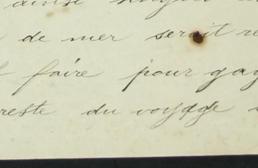 de mer serait
faire pour gag
reste du voyage